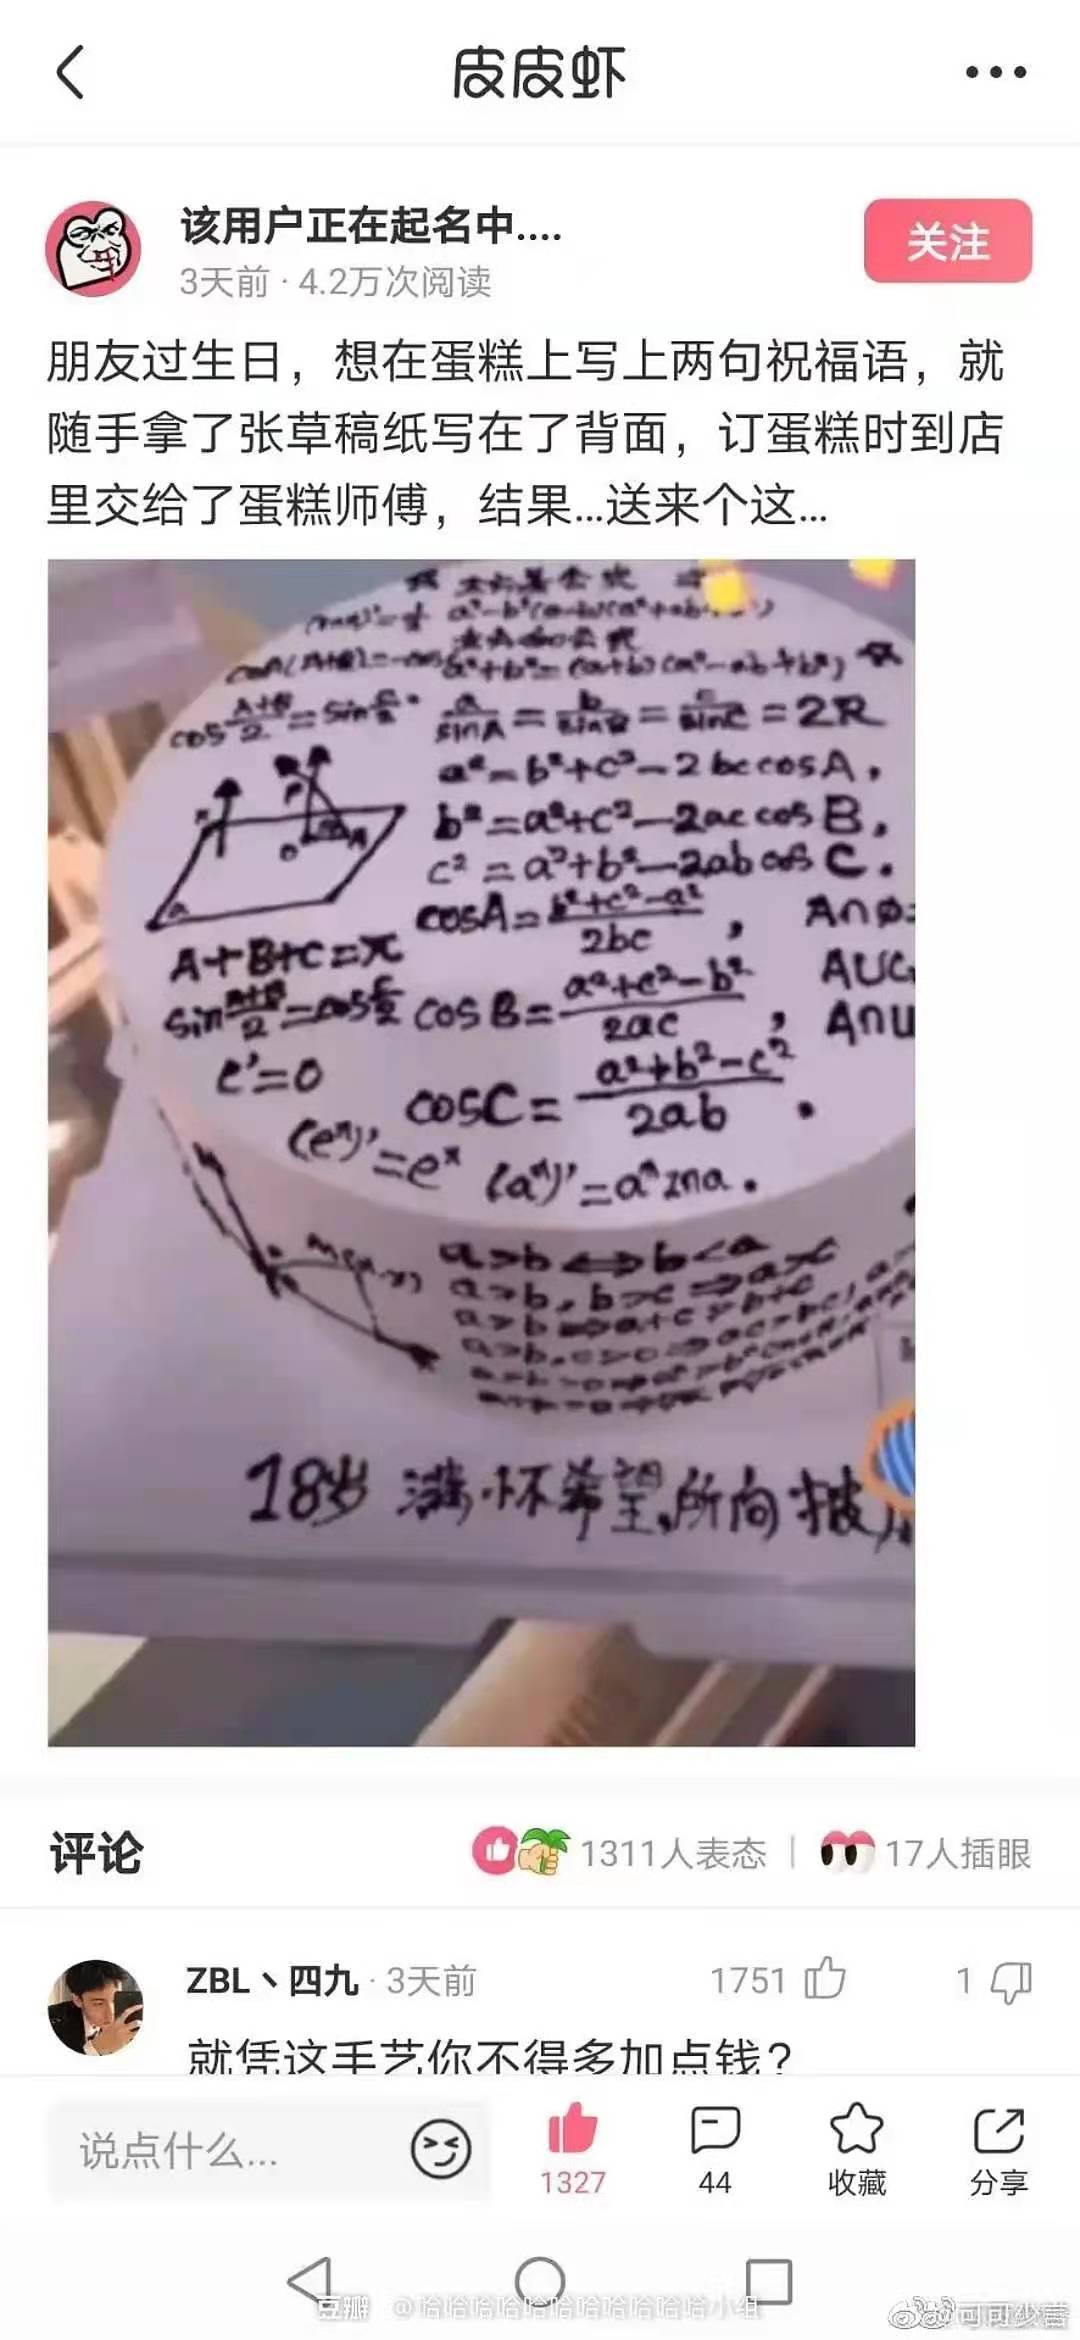 皮皮虾
该用户正在起名中....
3天前 · 4.2万次阅读
关注
朋友过生日，想在蛋糕上写上两句祝福语，就
随手拿了张草稿纸写在了背面，订蛋糕时到店
里交给了蛋糕师傅，结果...送来个这...
cos A+B/2 = sin C/2
a/sinA = b/sinB = c/sinC = 2R
a²=b²+c²-2bccosA,
b²=a²+c²-2accosB,
c²=a²+b²-2abcosC.
cosA=b²+c²-a²/2bc,
A∩ø=
A+B+C=π
AUC
sin A+B/2 = cos C/2
cosB=a²+c²-b²/2ac,
A∩U
c'=0
cosC=a²+b²-c²/2ab.
(eˣ)'=eˣ
a>b⟺b<a
a>b,b>c⟹a>c
18岁 满怀希望,所向披
评论
1311人表态
17人插眼
ZBL丶四九 · 3天前
1751
1
就凭这手艺你不得多加点钱?
说点什么...
1327
44
收藏
分享
豆瓣 @哈哈哈哈哈哈哈哈哈哈哈小组